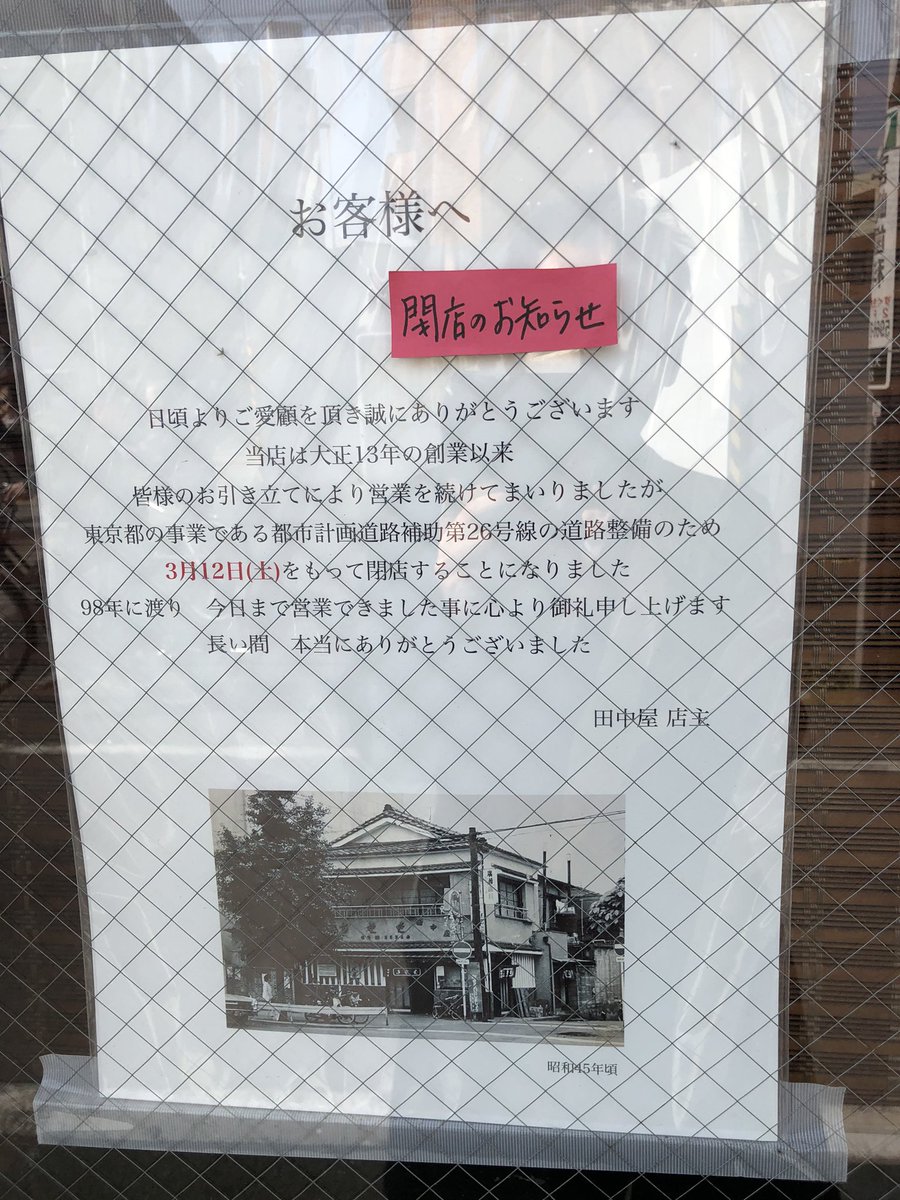 お客様へ
閉店のお知らせ
日頃よりご愛顧を頂き誠にありがとうございます
当店は大正13年の創業以来
皆様のお引き立てにより営業を続けてまいりましたが
東京都の事業である都市計画道路補助第26号線の道路整備のため
3月12日(土)をもって閉店することになりました
98年に渡り　今日まで営業できました事に心より御礼申し上げます
長い間　本当にありがとうございました
田中屋 店主
昭和45年頃